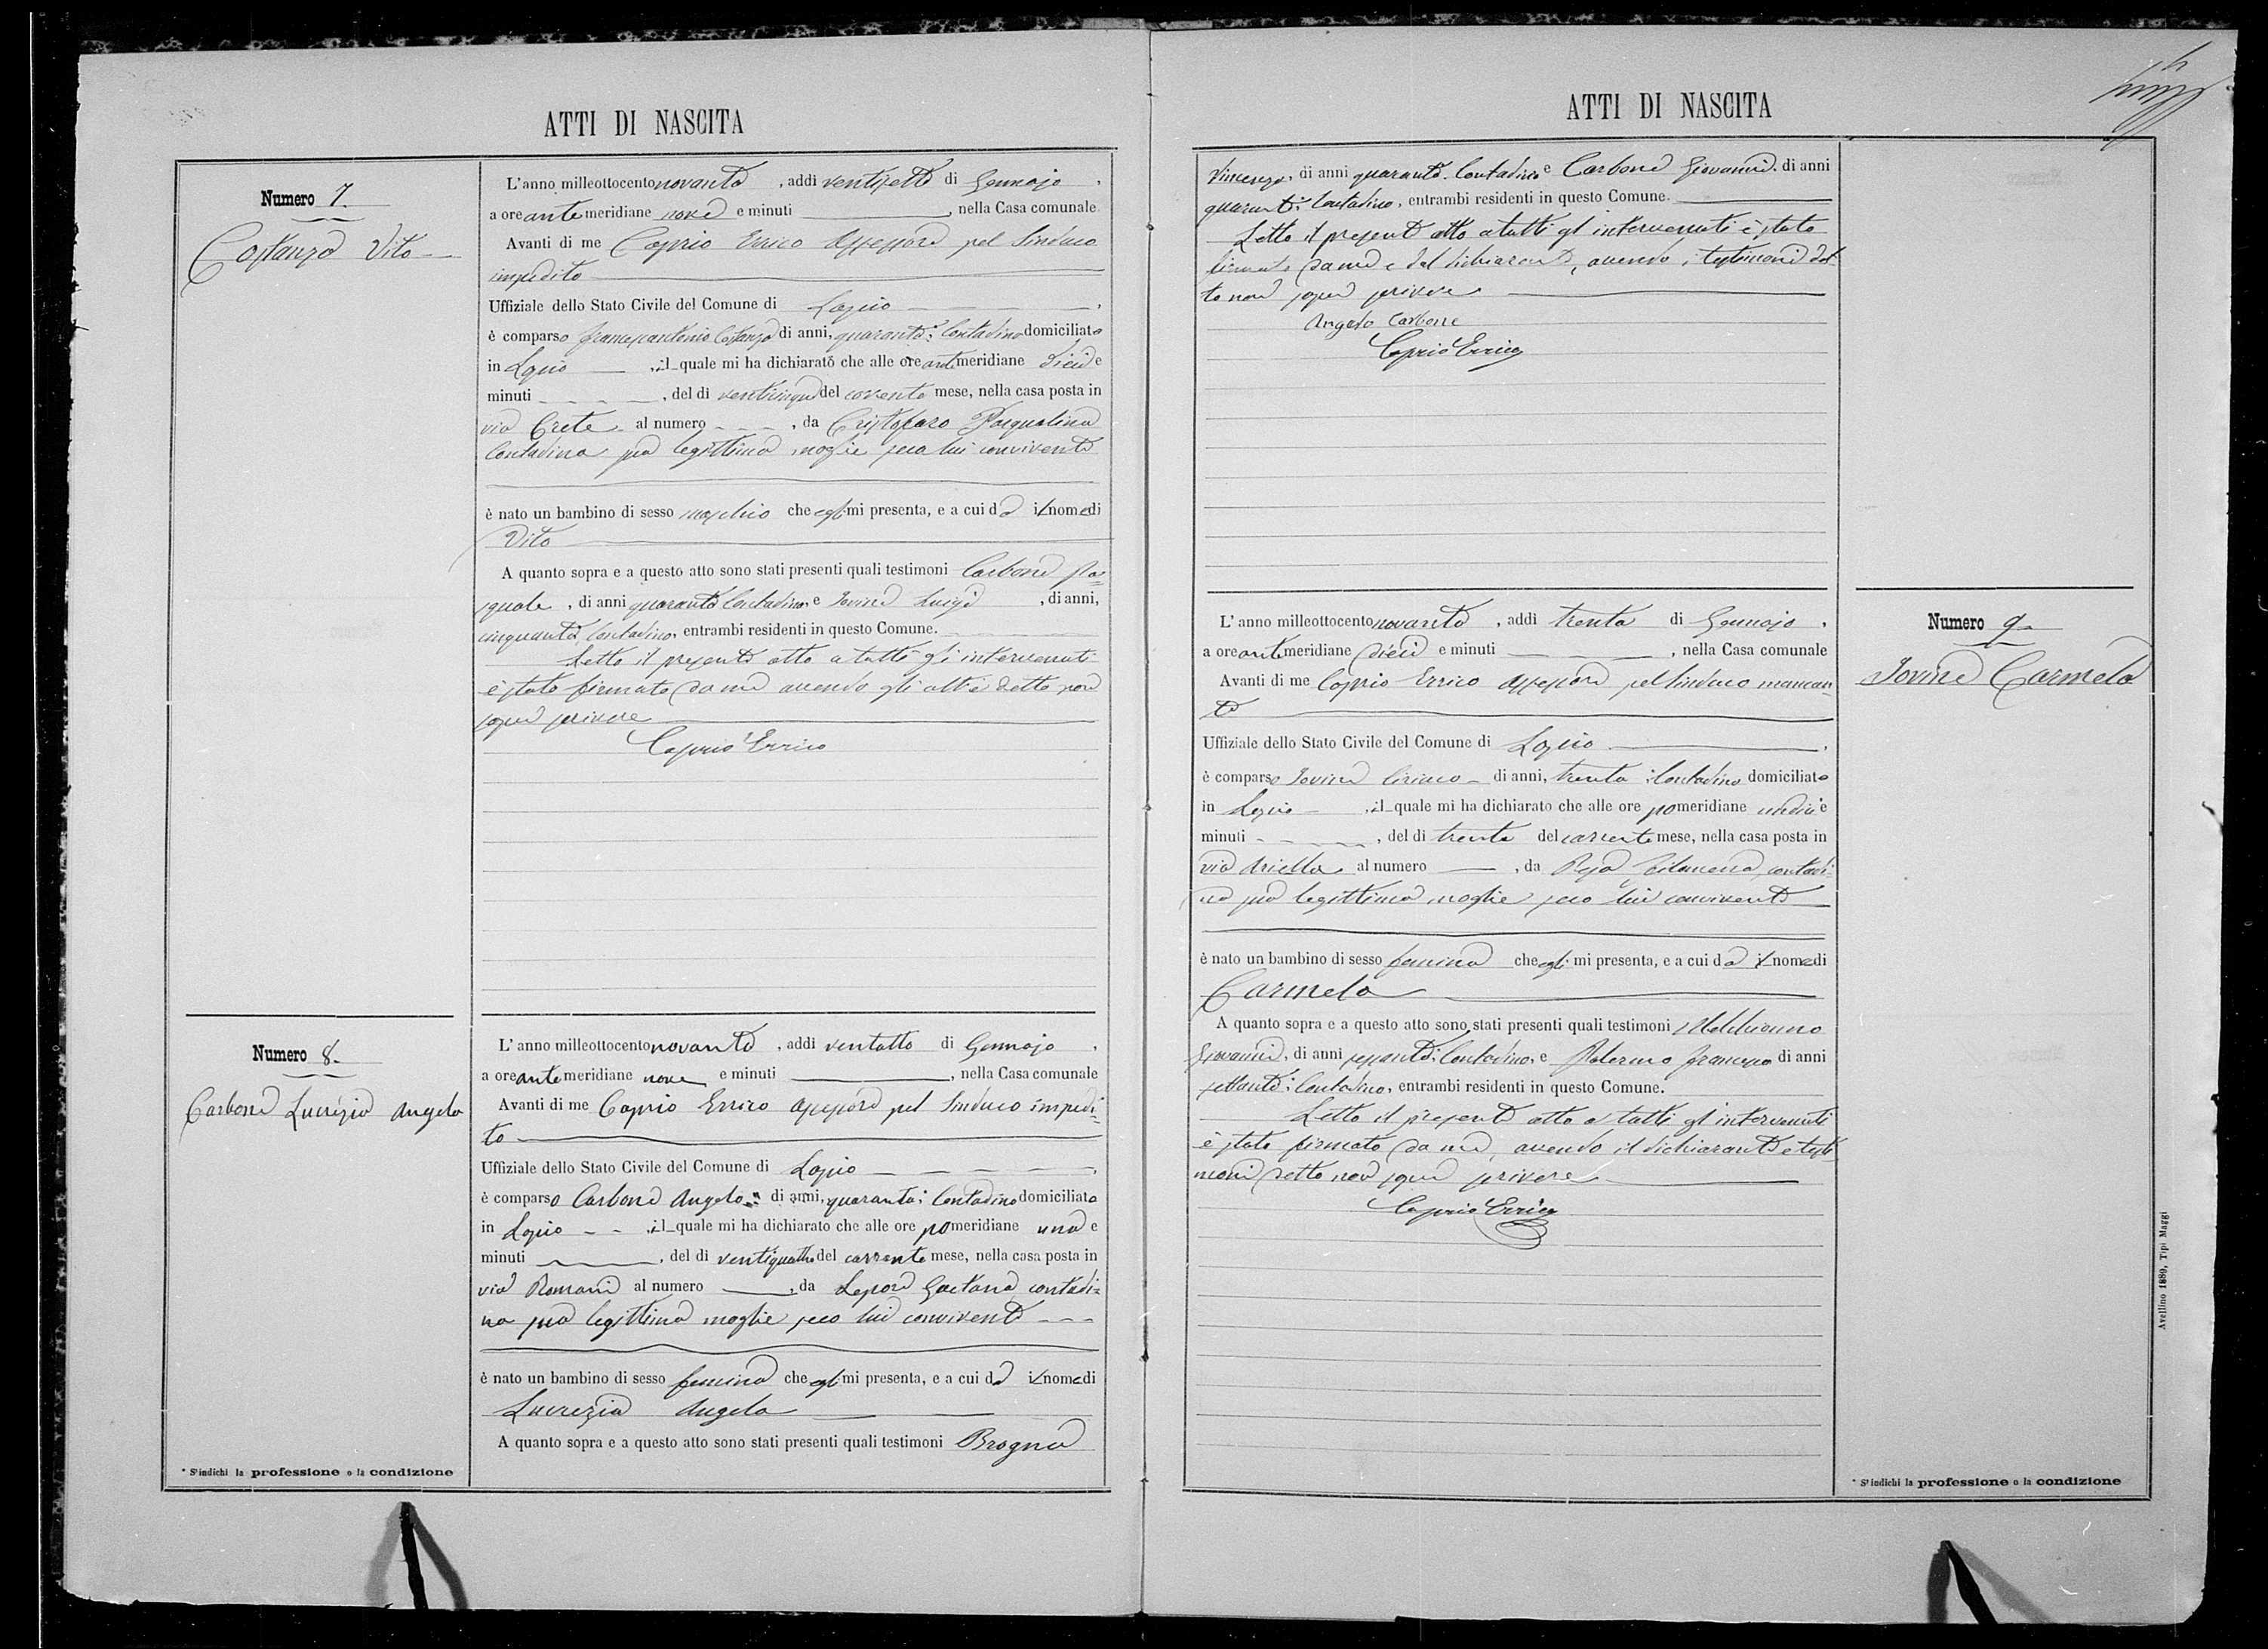 ATTI DI NASCITA
Numero 7.
Costanza Vito
L'anno milleottocentonovanta, addì ventisette di Gennajo,
a ore antemeridiane nove e minuti, nella Casa comunale.
Avanti di me Caprio Errico Assessore pel Sindaco
impedito
Uffiziale dello Stato Civile del Comune di Lapio,
è comparso Francescantonio Costanza di anni, quaranta; Contadino domiciliato
in Lapio, il quale mi ha dichiarato che alle ore antemeridiane dieci e
minuti, del dì venticinque del corrente mese, nella casa posta in
via Crete al numero, da Cristofaro Pasqualina
Contadina sua legittima moglie seco lui convivente
è nato un bambino di sesso maschio che egli mi presenta, e a cui dà il nome di
Vito
A quanto sopra e a questo atto sono stati presenti quali testimoni Carbone Pa=
squale, di anni quaranta Contadino, e Iovine Luigi, di anni,
cinquanta Contadino, entrambi residenti in questo Comune.
Letto il presente atto a tutti gli intervenuti
è stato firmato da me avendo gli altri detto non
saper scrivere
Caprio Errico
Numero 8.
Carbone Lucrezia Angela
L'anno milleottocentonovanta, addì ventotto di Gennajo,
a ore antemeridiane nove e minuti, nella Casa comunale
Avanti di me Caprio Errico Assessore pel Sindaco impedi=
to
Uffiziale dello Stato Civile del Comune di Lapio,
è comparso Carbone Angelo di anni, quaranta; Contadino domiciliato
in Lapio, il quale mi ha dichiarato che alle ore pomeridiane una e
minuti, del dì ventiquattro del corrente mese, nella casa posta in
via Romani al numero, da Lepore Gaetana contadi=
na sua legittima moglie seco lui convivente
è nato un bambino di sesso femina che egli mi presenta, e a cui dà il nome di
Lucrezia Angela
A quanto sopra e a questo atto sono stati presenti quali testimoni Brogna
* S'indichi la professione o la condizione
ATTI DI NASCITA
Vincenzo, di anni quaranta Contadino e Carbone Giovanni di anni
quaranta; Contadino, entrambi residenti in questo Comune.
Letto il presente atto a tutti gl'intervenuti è stato
firmato da me e dal dichiarante, avendo i testimoni det=
to non saper scrivere
Angelo Carbone
Caprio Errico
Numero 9.
Iovine Carmela
L'anno milleottocentonovanta, addì trenta di Gennajo,
a ore antemeridiane dieci e minuti, nella Casa comunale
Avanti di me Caprio Errico Assessore pel Sindaco mancan=
te
Uffiziale dello Stato Civile del Comune di Lapio,
è comparso Iovine Ciriaco di anni, trenta; Contadino domiciliato
in Lapio, il quale mi ha dichiarato che alle ore pomeridiane undici e
minuti, del dì trenta del corrente mese, nella casa posta in
via Ariella al numero, da Filomena contadi=
na sua legittima moglie seco lui convivente
è nato un bambino di sesso femina che egli mi presenta, e a cui dà il nome di
Carmela
A quanto sopra e a questo atto sono stati presenti quali testimoni
Giovanni, di anni sessanta; Contadino, e Palermo Francesco di anni
settanta; Contadino, entrambi residenti in questo Comune.
Letto il presente atto a tutti gl'intervenuti
è stato firmato da me, avendo il dichiarante e testi=
moni detto non saper scrivere
Caprio Errico
* S'indichi la professione o la condizione
Avellino 1889, Tipi Maggi